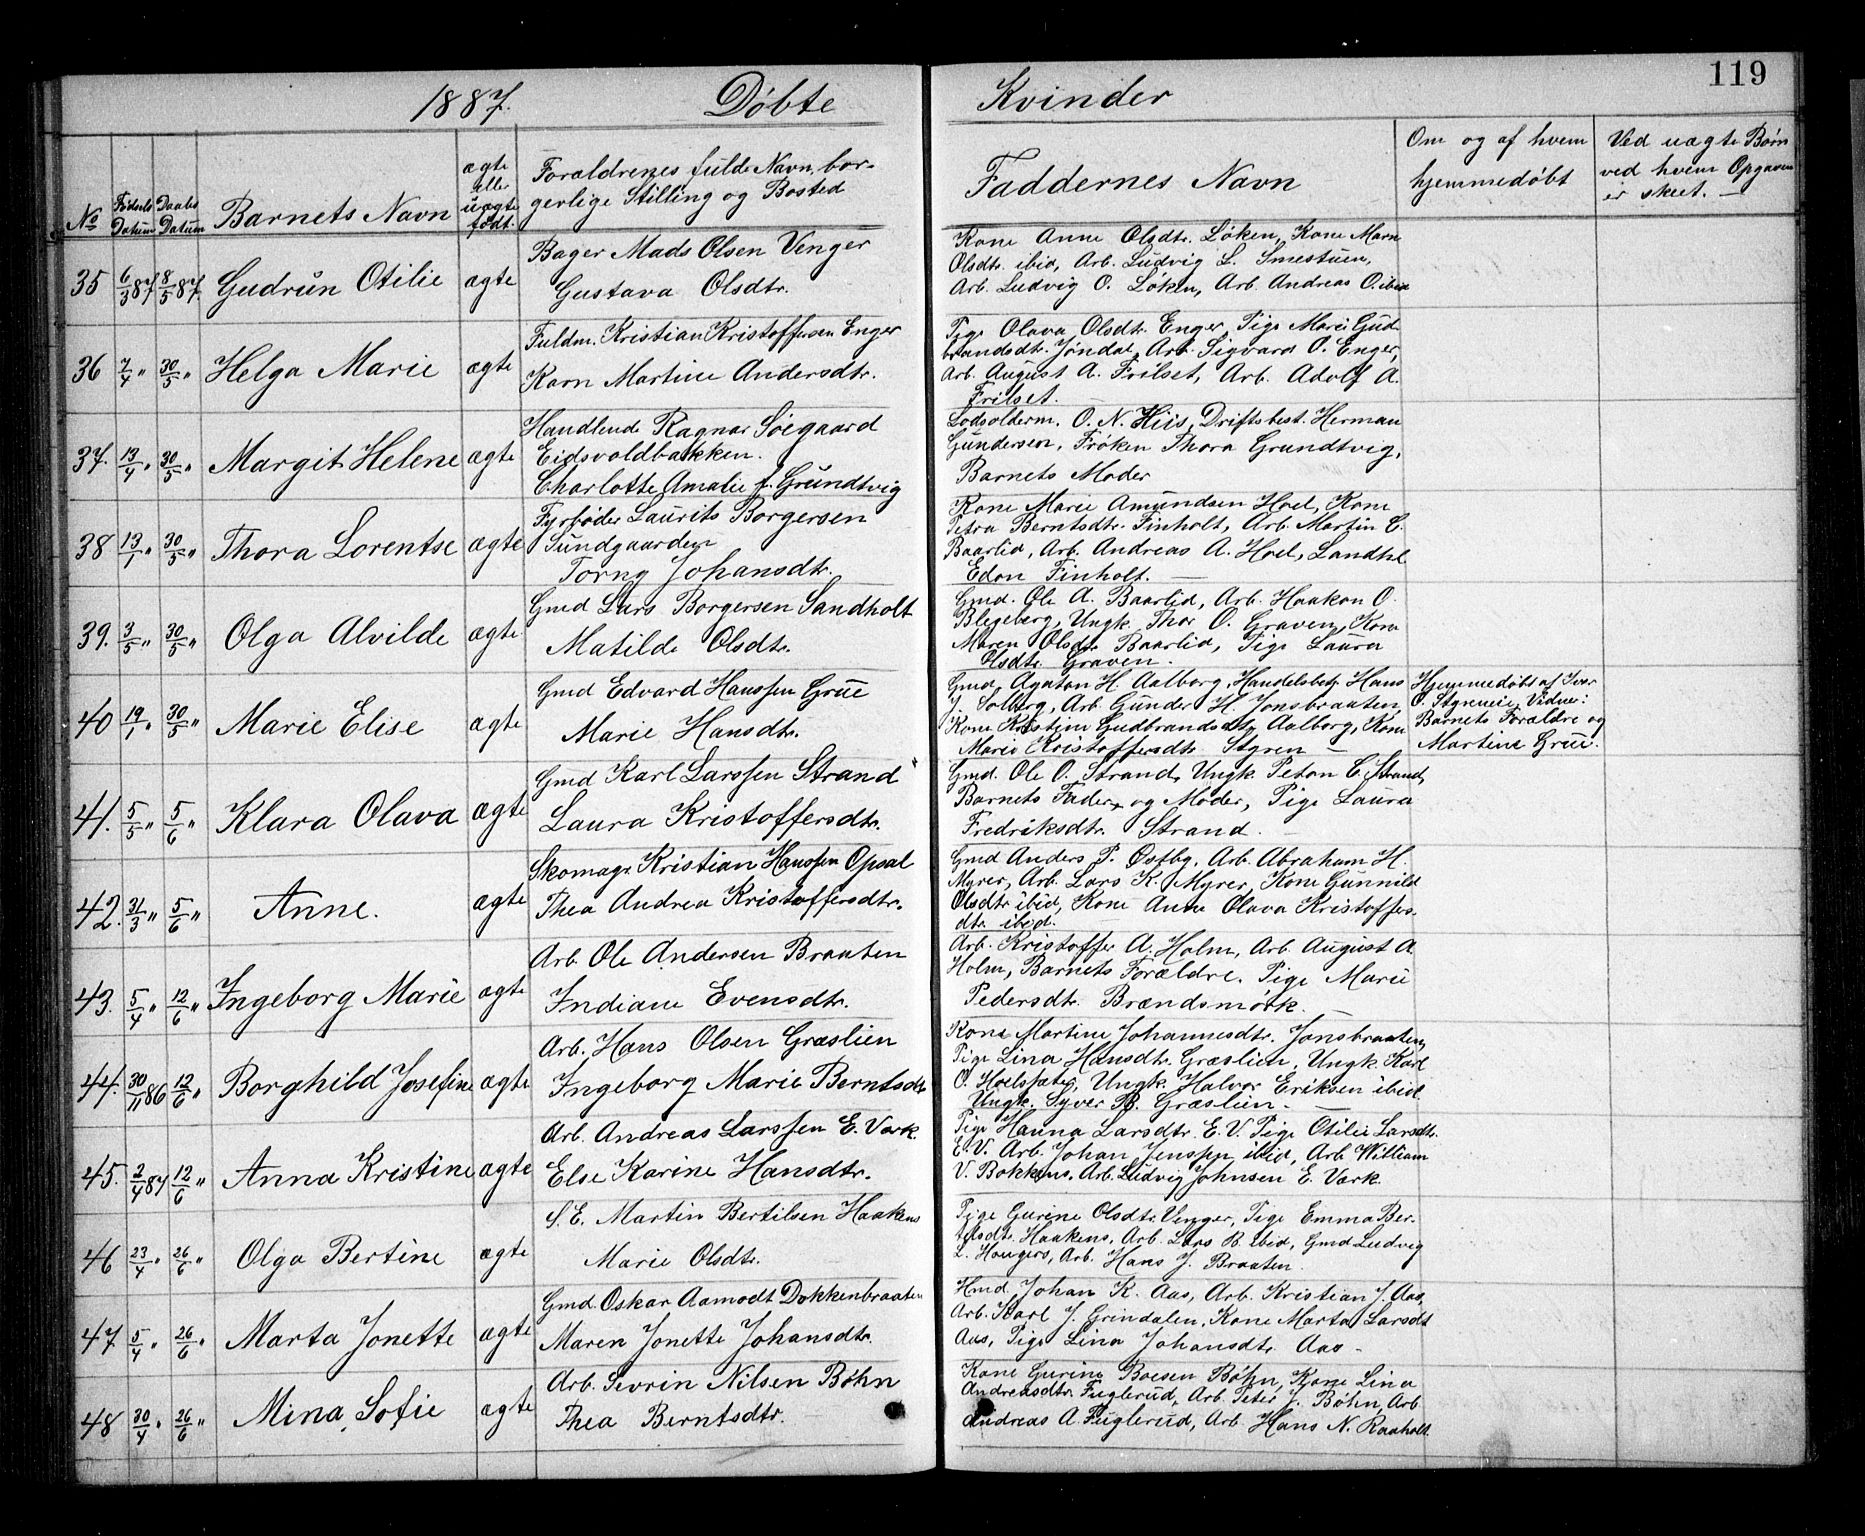 119
1887. Døbte Kvinder
№
Fødsels Datum
Daabs Datum
Barnets Navn
ægte eller uægte født.
Forældrenes fulde Navn, bor-
gerlige Stilling og Bosted
Faddernes Navn
Om og af hvem
hjemmedøbt
Ved uægte Børn
ved hvem Opgaven
er skeet. —
35 6/3 87 8/5 87. Gudrun Otilie ægte
Bager Mads Olsen Venger
Gustava Olsdtr.
Kone Anne Olsdtr. Løken, Kone Marn
Olsdtr. ibid, Arb. Ludvig L. Smestuen,
Arb. Ludvig O. Løken, Arb. Andreas O. ibid
36 7/4 " 30/5 " Helga Marie ægte
Fuldm. Kristian Kristoffersen Enger
Karn Martine Andersdtr.
Pige Olava Olsdtr. Enger, Pige Marie Gud-
brandsdtr. Jøndal, Arb. Sigvard O. Enger,
Arb. August A. Frilset, Arb. Adolf A.
Frilset.
37. 13/4 " 30/5 " Margit Helene ægte
Handlende Ragnar Søegaard
Eidsvoldbakken.
Charlotte Amalie f. Grundtvig
Lodsolderm. O. N. Hiis, Driftsbest. Herman
Gundersen, Frøken Thora Grundtvig,
Barnets Moder
38 13/1 " 30/5 " Thora Lorentse ægte
Fyrbøder Laurits Borgersen
Sundgaarden
Torny Johansdtr.
Kone Marie Amundsen Hoel, Kone
Petra Berntsdtr. Finholt, Arb. Martin E.
Baarlid, Arb. Andreas A. Hoel, Landhl.
Edon Finholt. —
39. 3/5 " 30/5 " Olga Alvilde ægte
Gmd Lars Borgersen Sandholt
Matilde Olsdtr.
Gmd. Ole A. Baarlid, Arb. Haakon O.
Blegeberg, Ungk. Thor O. Graven, Kone
Maren Olsdtr. Baarlid, Pige Laura
Olsdtr. Graven.
40 19/1 " 30/5 " Marie Elise ægte
Gmd Edvard Hanssen Grue
Marie Hansdtr.
Gmd. Agaton H. Aalborg, Handelsbetj. Hans
J. Solberg, Arb. Gunder H. Jonsbraaten,
Kone Kristine Gudbrandsdtr. Aalborg, Kone
Marie Kristoffersdtr. Styren —
Hjemmedøbt af Iver
O. Styrmeie. Vidner:
Barnets Forældre og
Martine Grue.
41. 5/5 " 5/6 " Klara Olava ægte
Gmd Karl Larssen Strand
Laura Kristoffersdtr.
Gmd. Ole O. Strand, Ungk. Peton C. Strand,
Barnets Fader og Moder, Pige Laura
Fredriksdtr. Strand.
42. 31/3 " 5/6 " Anne. ægte
Skomagr. Kristian Hanssen Opsal
Thea Andrea Kristoffersdtr.
Gmd Anders P. Østbg, Arb. Abraham H.
Myrer, Arb. Lars K. Myrer, Kone Gunnild
Olsdtr ibid, Kone Anne Olava Kristoffers-
dtr ibid.
43. 5/4 " 12/6 " Ingeborg Marie ægte
Arb. Ole Andersen Braaten
Indiane Evensdtr.
Arb. Kristoffer A. Holm, Arb. August A.
Holm, Barnets Forældre, Pige Marie
Pedersdtr. Brændsmørk.
44. 30/11 86 12/6 " Borghild Josefine ægte
Arb. Hans Olsen Græslien
Ingeborg Marie Berntsdtr
Kone Martine Johannesdtr. Jonsbraaten,
Pige Lina Hansdtr. Græslien, Ungk. Karl
O. Hoelsæter, Ungk. Halvor Eriksen ibid.
Ungk. Syver B. Græslien. —
45. 2/4 87 12/6 " Anna Kristine ægte
Arb. Andreas Larssen E. Værk.
Else Karine Hansdtr.
Pige Hanna Larsdtr. E. V. Pige Otilie Larsdtr.
E. V. Arb. Johan Jenssen ibid, Arb. William
V. Bakkens, Arb. Ludvig Johnsen E. Værk.
46 23/4 " 26/6 " Olga Bertine ægte
S. E. Martin Bertilsen Haakens
Marie Olsdtr.
Pige Gurine Olsdtr. Venger, Pige Emma Ber-
tilsdtr. Haakens, Arb. Lars B. ibid, Gmd Ludvig
L. Haugers, Arb. Hans J. Braaten.
47 5/4 " 26/6 " Marta Jonette ægte
Gmd. Oskar Aamodt Dokkenbraaten
Maren Jonette Johansdtr.
Hmd. Johan K. Aas, Arb. Kristian J. Aas,
Arb. Karl J. Grindalen, Kone Marta Larsdtr
Aas, Pige Lina Johansdtr. Aas —
48 30/4 " 26/6 " Mina Sofie ægte
Arb. Sevrin Nilsen Bøhn
Thea Berntsdtr.
Kone Gurine Boesen Bøhn, Kone Lina
Andreasdtr. Fuglerud, Arb. Peter J. Bøhn, Arb
Andreas A. Fuglerud, Arb. Hans N. Raaholt.